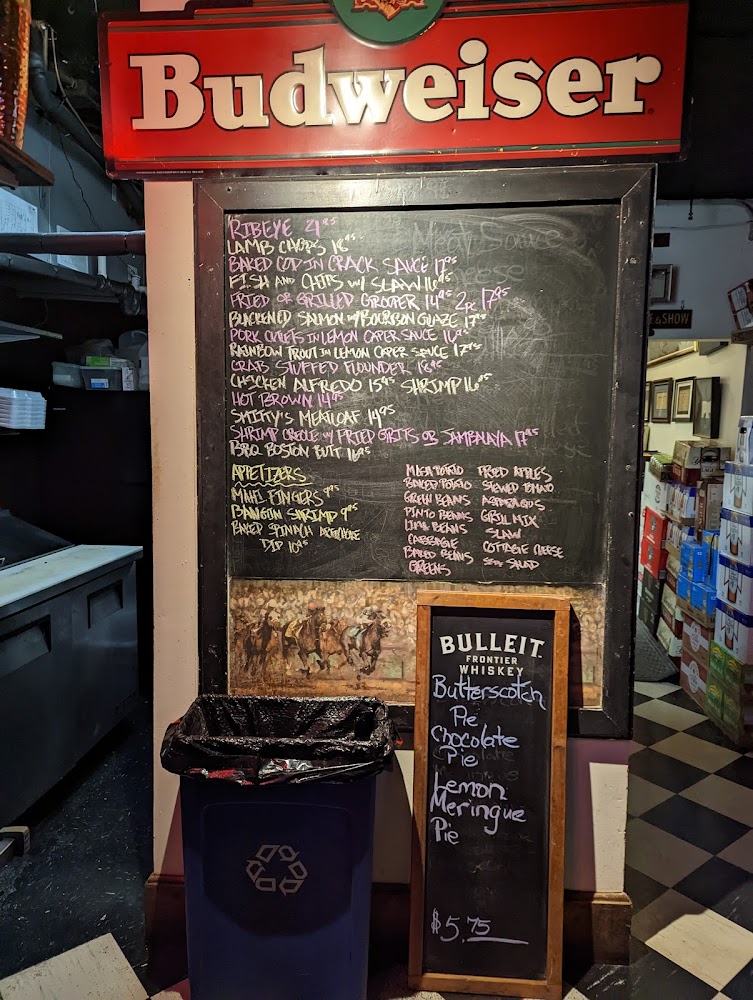 Budweiser
RIBEYE 21.95
LAMB CHOPS 18.95
BAKED COD IN CRACK SAUCE 17.95
FISH AND CHIPS W/ SLAW 16.95
FRIED OR GRILLED GROUPER 14.95 2PC 17.95
BLACKENED SALMON W/ BOURBON GLAZE 17.95
PORK CUTLETS IN LEMON CAPER SAUCE 16.95
RAINBOW TROUT IN LEMON CAPER SAUCE 17.95
CRAB STUFFED FLOUNDER 18.95
CHICKEN ALFREDO 15.95 SHRIMP 16.95
HOT BROWN 14.95
SMITTY'S MEATLOAF 14.95
SHRIMP CREOLE W/ FRIED GRITS OR JAMBALAYA 17.95
BBQ BOSTON BUTT 16.95
APPETIZERS
MAHI FINGERS 9.95
BANGIN SHRIMP 9.95
BAKED SPINACH ARTICHOKE
DIP 10.95
MASH POTATO FRIED APPLES
BAKED POTATO STEWED TOMATO
GREEN BEANS ASPARAGUS
PINTO BEANS GRILL MIX
LIMA BEANS SLAW
CABBAGE COTTAGE CHEESE
BAKED BEANS SIDE SALAD
GREENS
Meat Sauce
& SHOW
BULLEIT
FRONTIER
WHISKEY
Butterscotch
Pie
Chocolate
Pie
Lemon
Meringue
Pie
$5.75